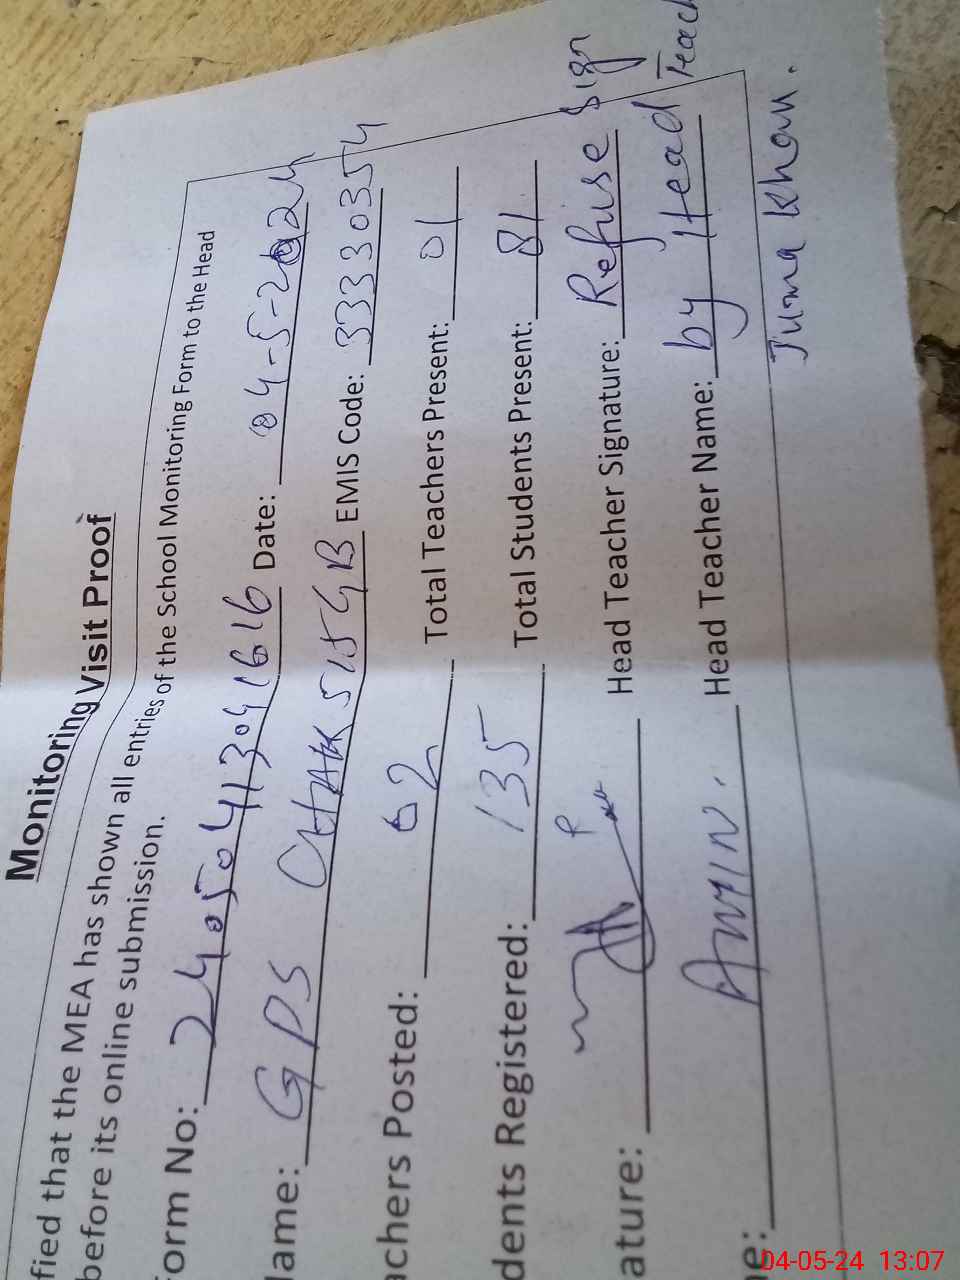 Monitoring Visit Proof
fied that the MEA has shown all entries of the School Monitoring Form to the Head
before its online submission.
orm No: 2405041304 1616 Date: 04-5-2024
lame: GPS CHAK 515 GB EMIS Code: 33330354
achers Posted: 02 Total Teachers Present: 01
dents Registered: 135 Total Students Present: 81
ature: Head Teacher Signature: Refuse Sign
e: AMIN. Head Teacher Name: by Head Teach
Juma Khan.
04-05-24 13:07